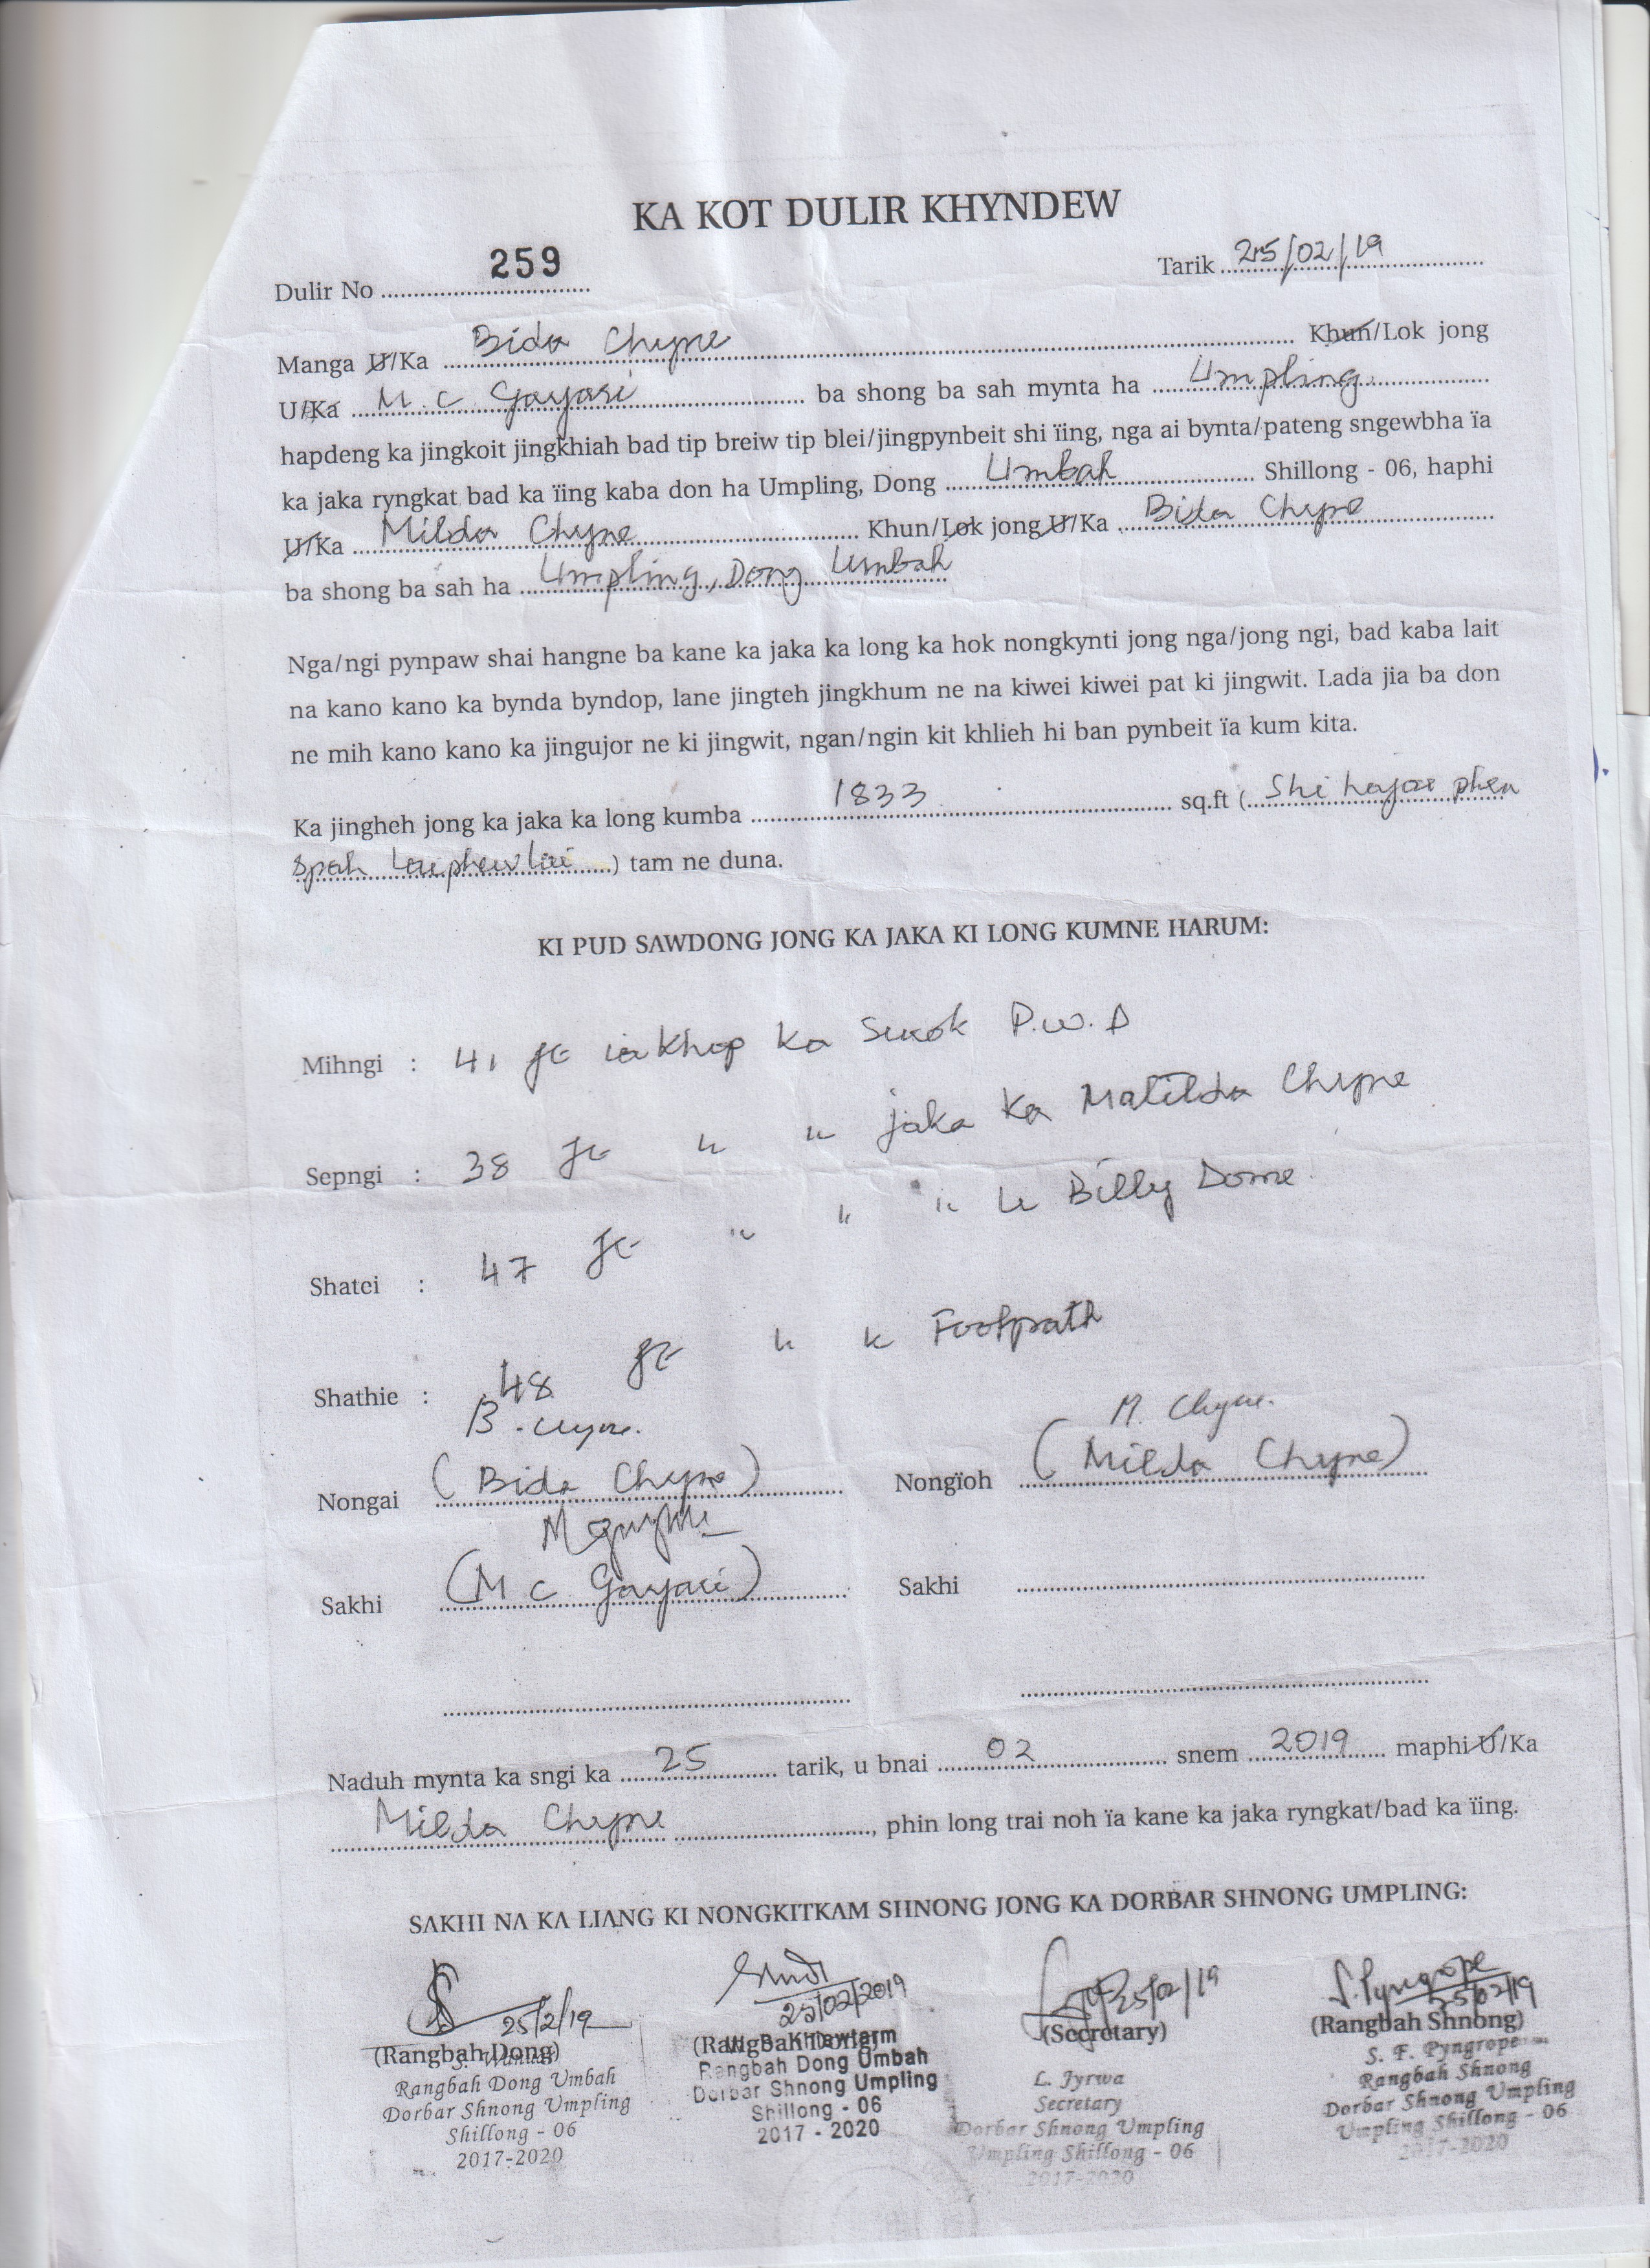 KA KOT DULIR KHYNDEW
Dulir No 259 Tarik 25/02/19
Manga U/Ka Bida Chyne Khun/Lok jong
U/Ka M. C Gayari ba shong ba sah mynta ha Umpling
hapdeng ka jingkoit jingkhiah bad tip breiw tip blei/jingpynbeit shi ïing, nga ai bynta/pateng sngewbha ïa
ka jaka ryngkat bad ka ïing kaba don ha Umpling, Dong Umbah Shillong - 06, haphi
U/Ka Milda Chyne Khun/Lok jong U/Ka Bida Chyne
ba shong ba sah ha Umpling, Dong Umbah
Nga/ngi pynpaw shai hangne ba kane ka jaka ka long ka hok nongkynti jong nga/jong ngi, bad kaba lait
na kano kano ka bynda byndop, lane jingteh jingkhum ne na kiwei kiwei pat ki jingwit. Lada jia ba don
ne mih kano kano ka jingujor ne ki jingwit, ngan/ngin kit khlieh hi ban pynbeit ïa kum kita.
Ka jingheh jong ka jaka ka long kumba 1833 sq.ft (Shi hajar phra
Spah laiphew lai) tam ne duna.
KI PUD SAWDONG JONG KA JAKA KI LONG KUMNE HARUM:
Mihngi : 41 ft iakhap ka Surok P.W.D
Sepngi : 38 ft " " jaka ka Matilda Chyne
Shatei : 47 ft " " " U Billy Dome.
Shathie : 48 ft " " Footpath
B. Chyne. M. Chyne.
Nongai (Bida Chyne) Nongïoh (Milda Chyne)
Sakhi (M C Gayari) Sakhi
Naduh mynta ka sngi ka 25 tarik, u bnai 02 snem 2019 maphi U/Ka
Milda Chyne, phin long trai noh ïa kane ka jaka ryngkat/bad ka ïing.
SAKHI NA KA LIANG KI NONGKITKAM SHNONG JONG KA DORBAR SHNONG UMPLING:
25/2/19 25/02/2019 25/02/19 S. Pyngrope 25/02/19
(Rangbah Dong) (Rangbah Dong) (Secretary) (Rangbah Shnong)
Rangbah Dong Umbah
Dorbar Shnong Umpling
Shillong - 06
2017-2020
Khawtarm
Rangbah Dong Umbah
Dorbar Shnong Umpling
Shillong - 06
2017 - 2020
L. Jyrwa
Secretary
Dorbar Shnong Umpling
Umpling Shillong - 06
2017-2020
S. F. Pyngrope
Rangbah Shnong
Dorbar Shnong Umpling
Umpling Shillong - 06
2017-2020